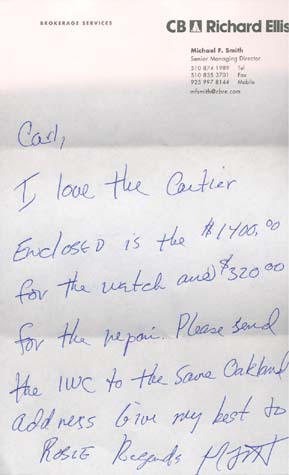 BROKERAGE SERVICES
CB Richard Ellis
Michael F. Smith
Senior Managing Director
510 874 1989 Tel
510 835 3731 Fax
925 997 8144 Mobile
mfsmith@cbre.com
Carl,
I love the Cartier
Enclosed is the $1400.00
for the watch and $320.00
for the repair. Please send
the IWC to the same Oakland
address Give my best to
ROSIE Regards